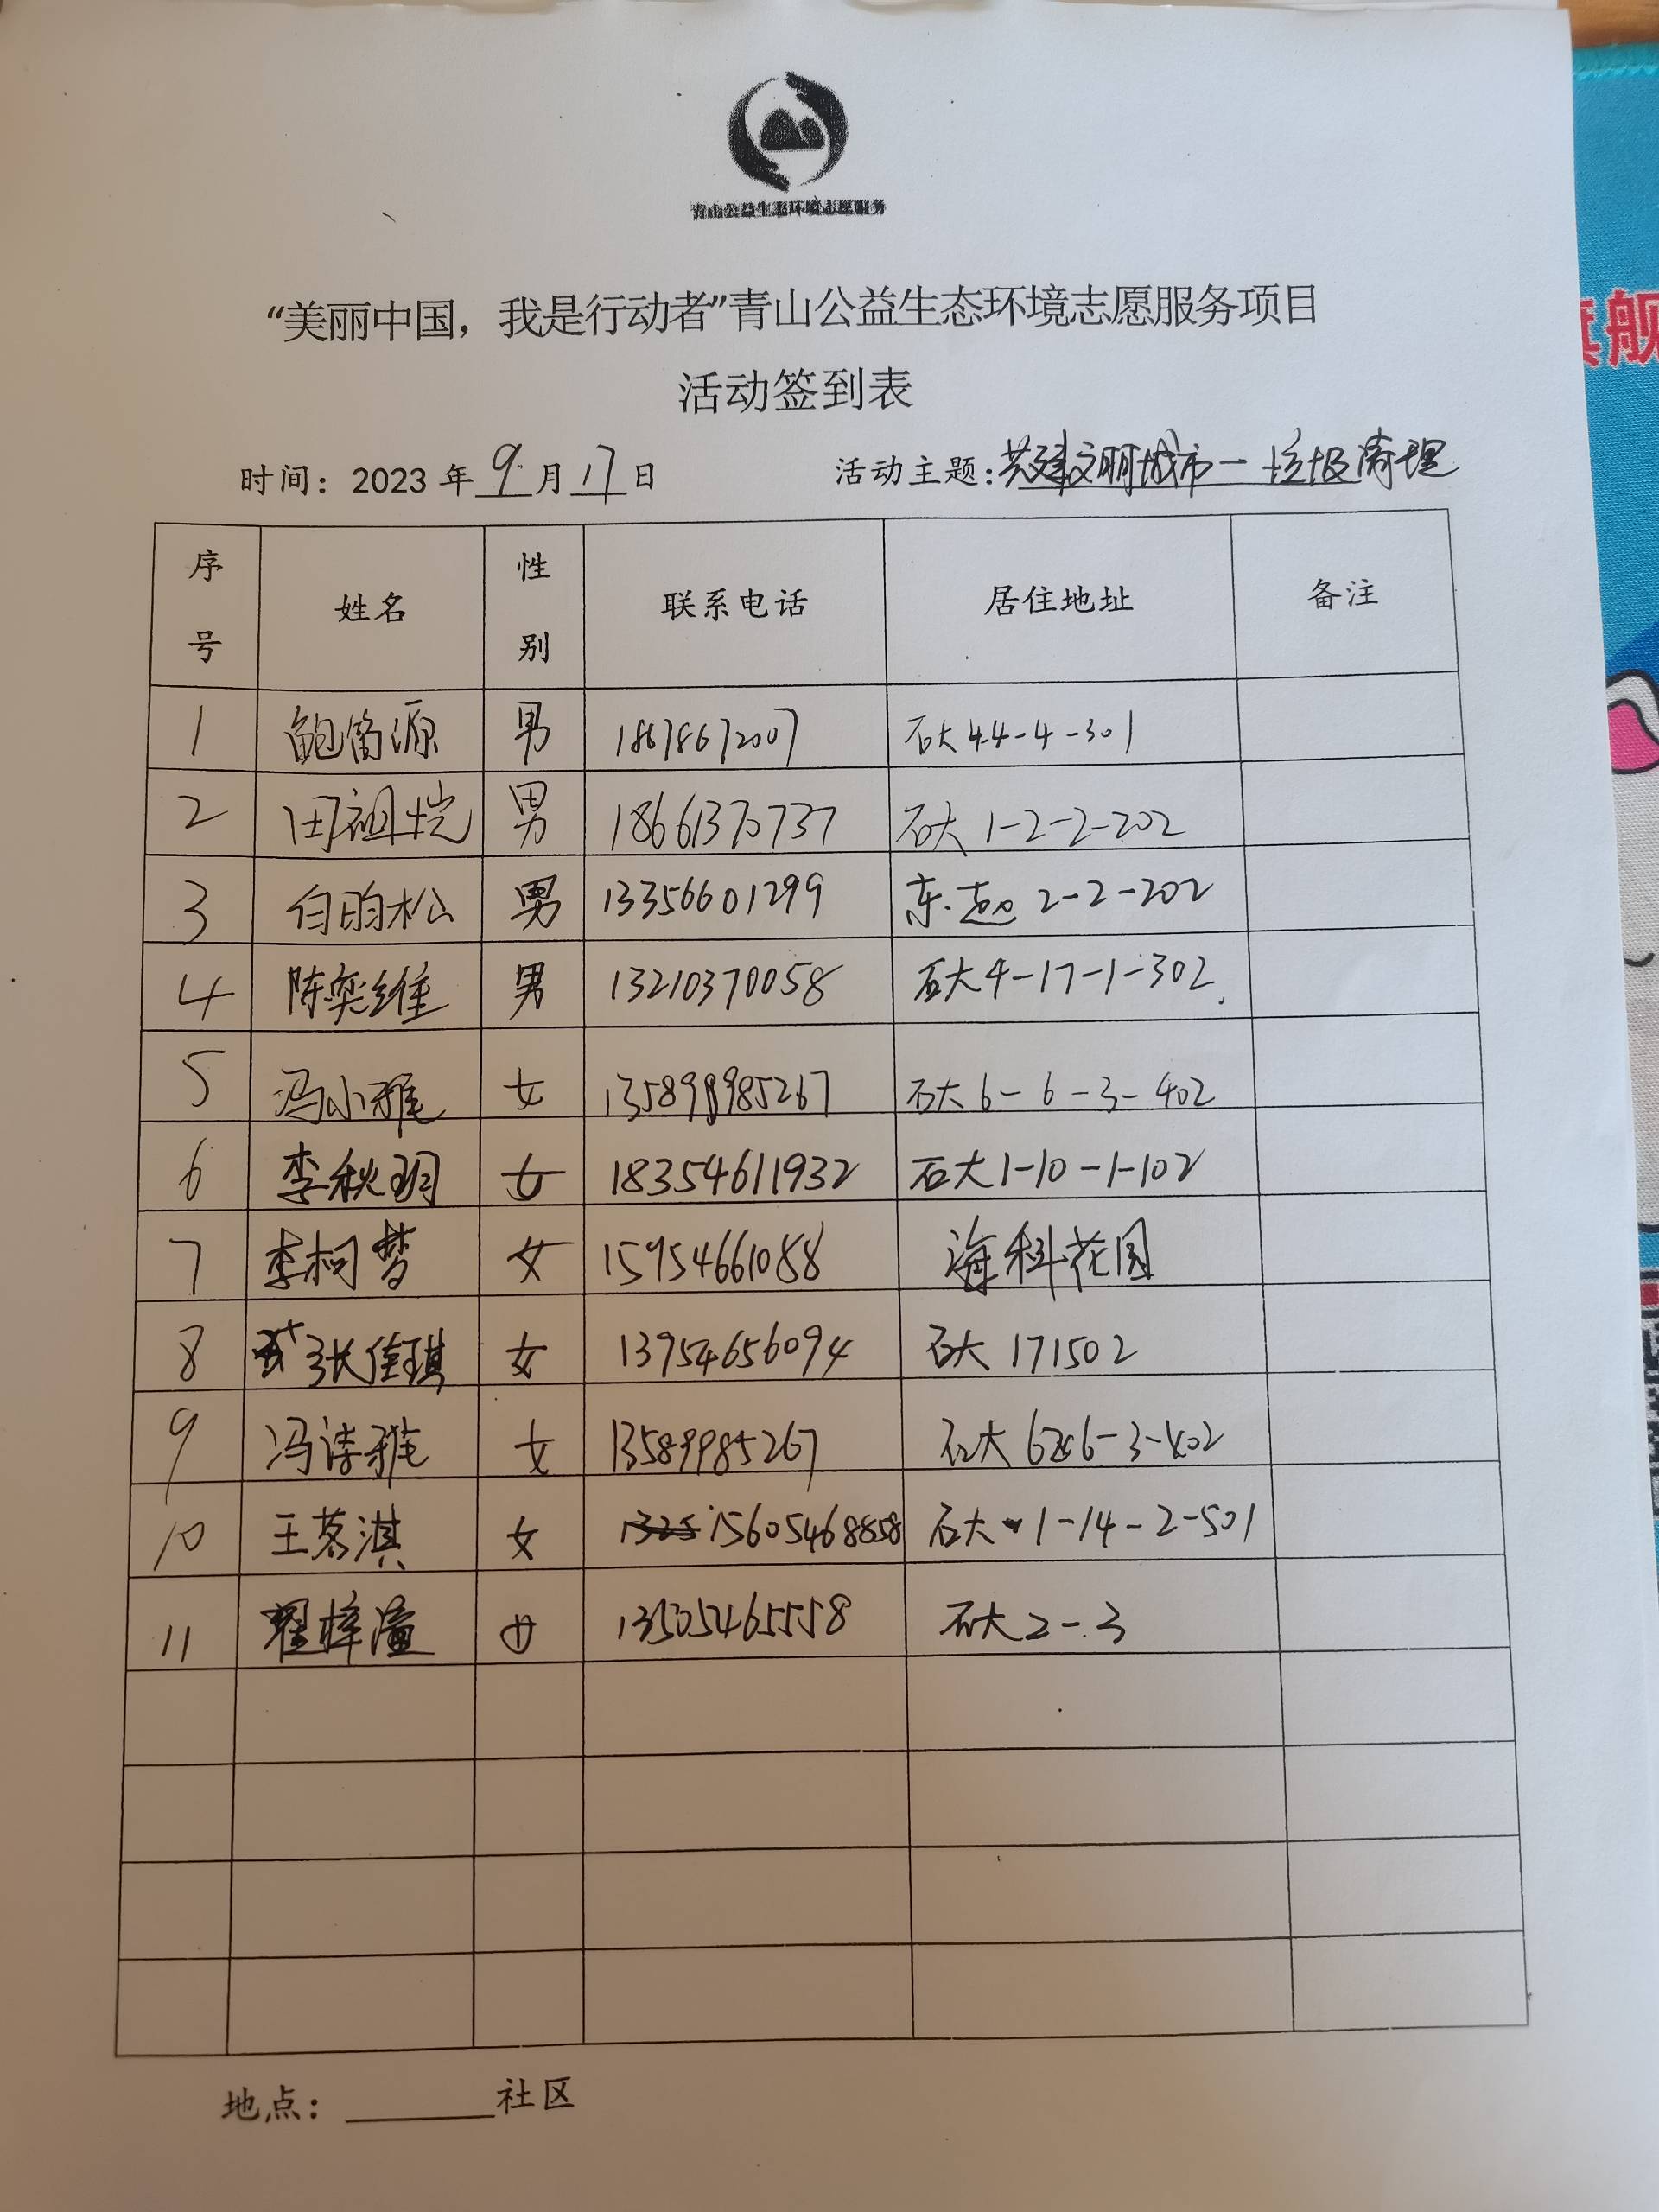 青山公益生态环境志愿服务
“美丽中国，我是行动者”青山公益生态环境志愿服务项目
活动签到表
时间：2023年9月17日 活动主题：共建文明城市一垃圾清理
序号 姓名 性别 联系电话 居住地址 备注
1 鲍裔源 男 18678672007 石大44-4-301
2 田祖恺 男 18661370737 石大1-2-2-202
3 白昀松 男 13356601299 东赵2-2-202
4 陈奕维 男 13210370058 石大4-17-1-302
5 冯小雅 女 石大6-6-3-402
6 李秋玥 女 18354611932 石大1-10-1-102
7 李柯梦 女 15954661088 海科花园
8 张佳琪 女 13954656094 石大171502
9 冯诗雅 女 13589985267 石大6-3-402
10 王茗淇 女 15605468858 石大1-14-2-501
11 翟梓潼 女 13505465558 石大2-3
地点：社区
旗舰